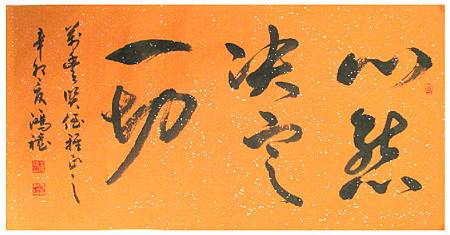 心態
决定
一切
賢侄雅正之
辛卯夏鴻